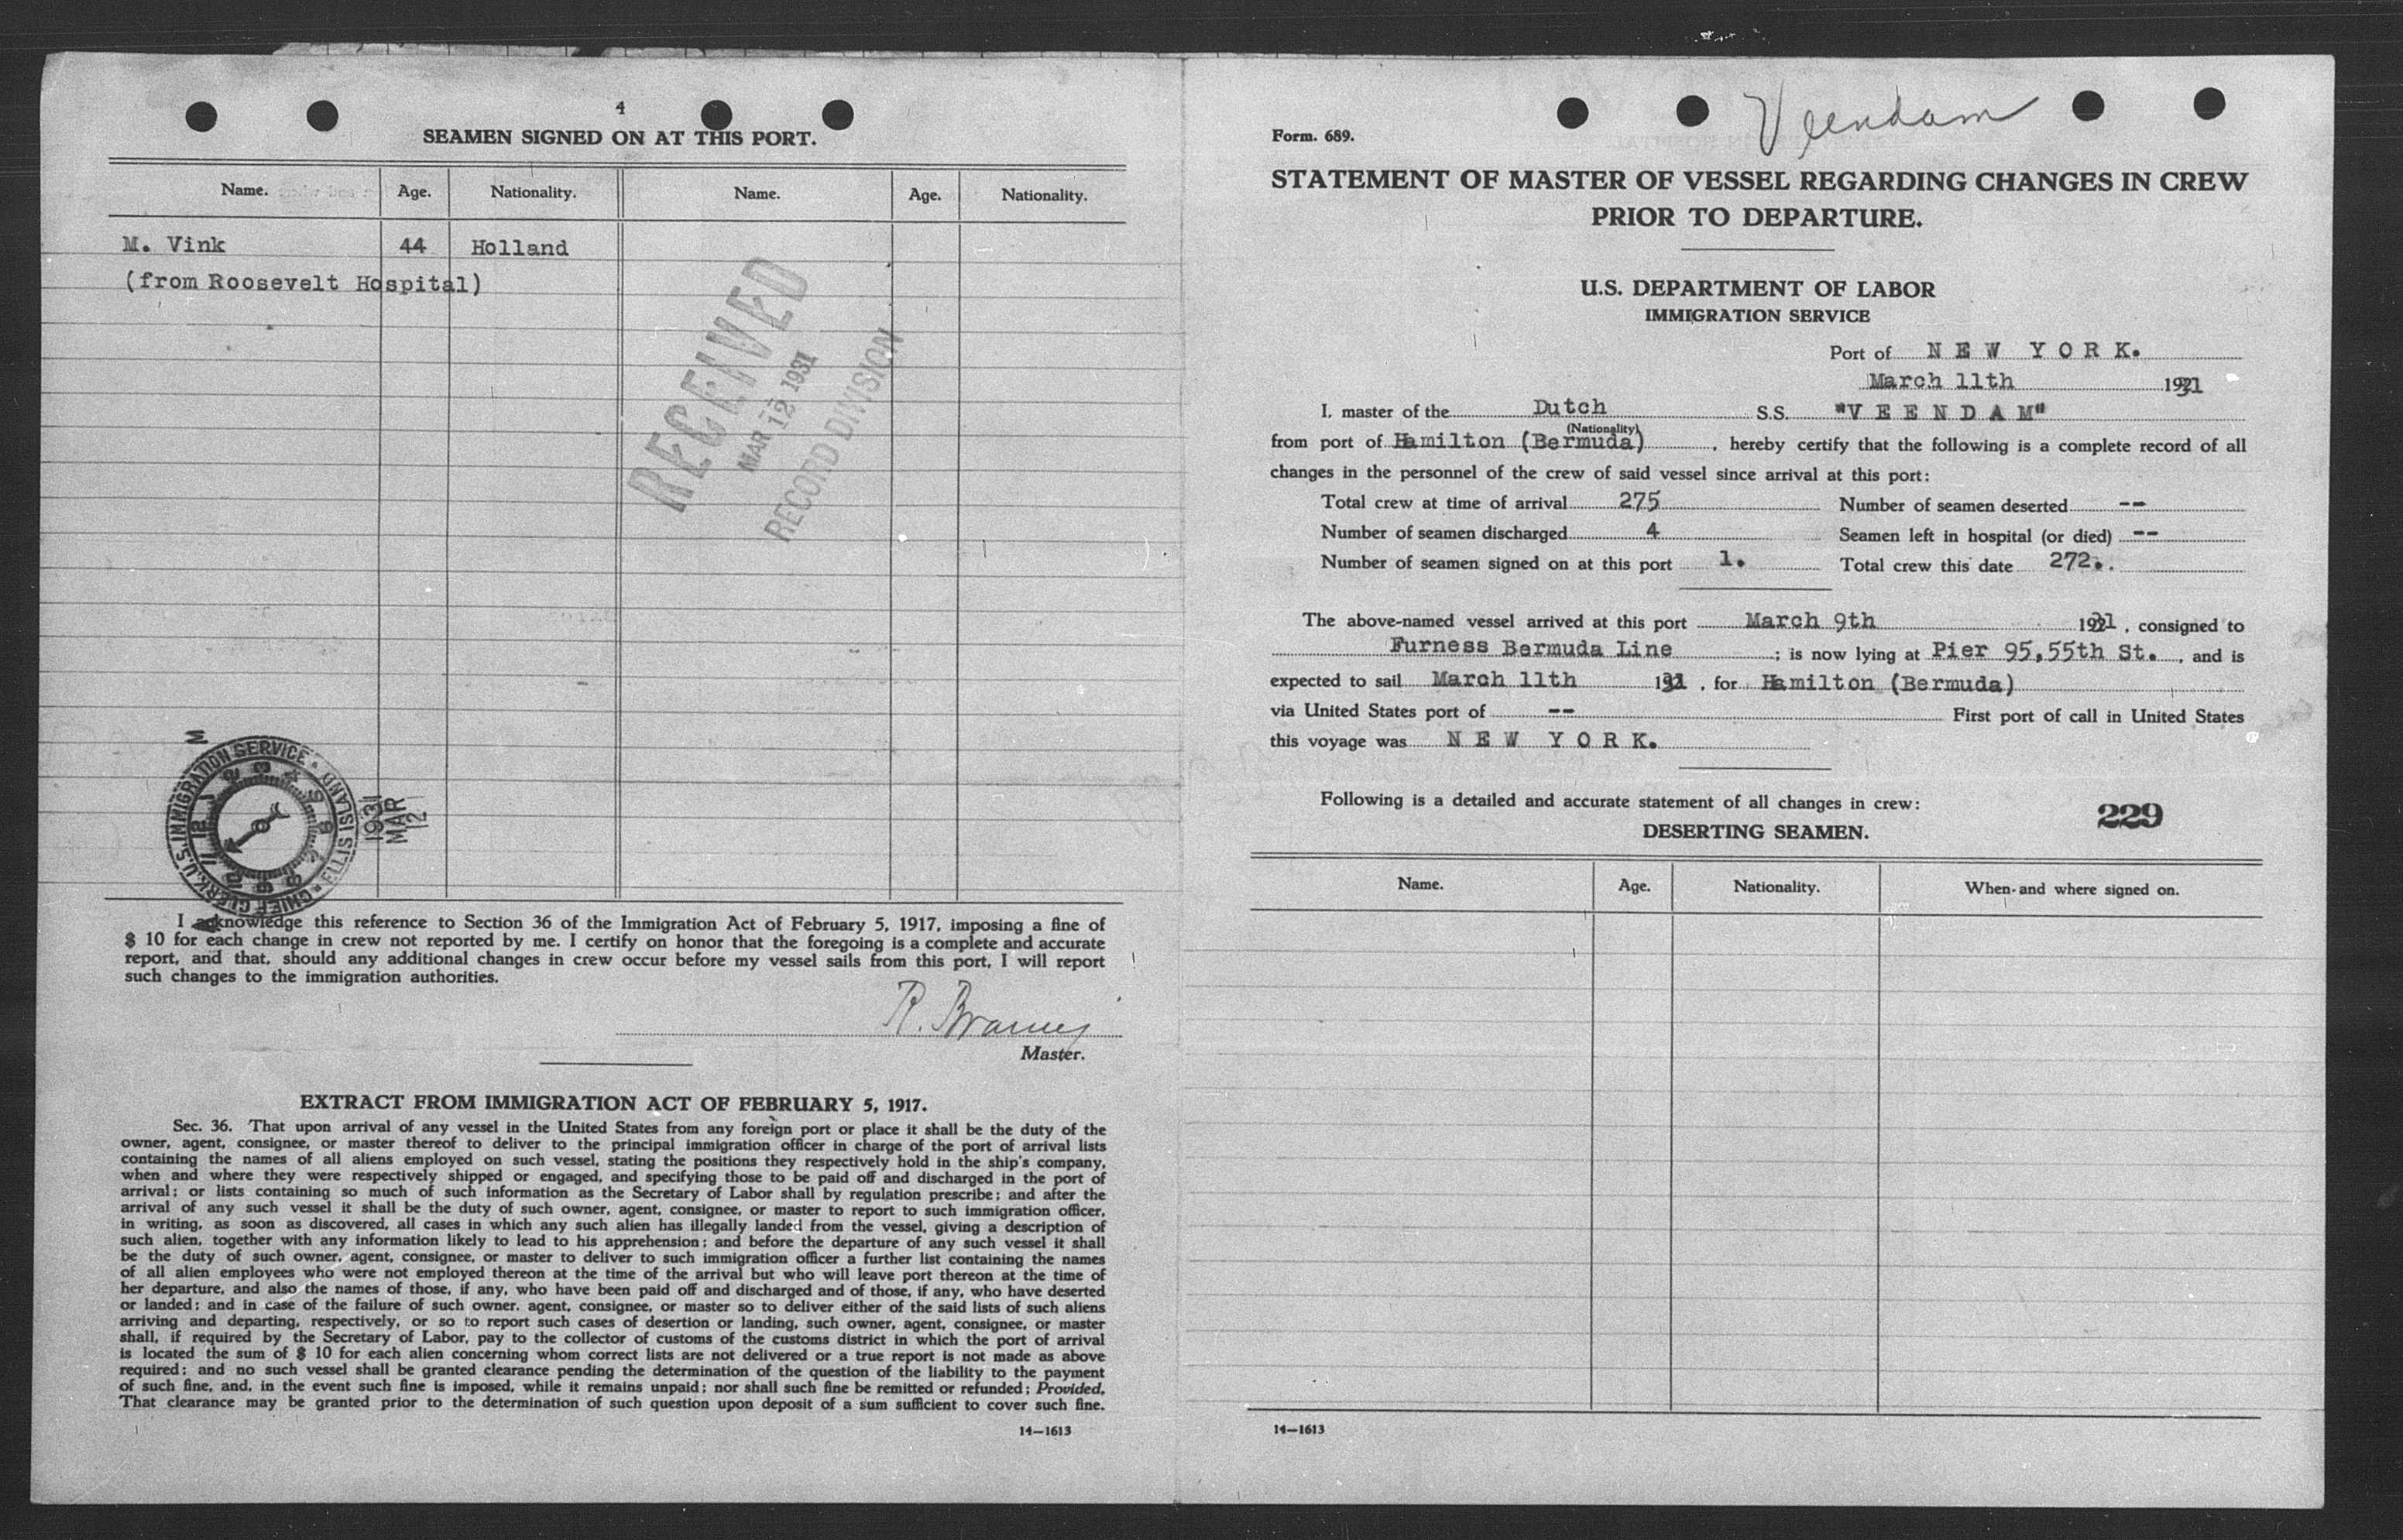 4
SEAMEN SIGNED ON AT THIS PORT.
Name. Age. Nationality. Name. Age. Nationality.
M. Vink 44 Holland
(from Roosevelt Hospital)
RECEIVED
MAR 12 1931
RECORD DIVISION
CHIEF CLERK, U.S. IMMIGRATION SERVICE • ELLIS ISLAND •
12 1 2 3 4 5 6 7 8 9 10 11
M
1931
MAR
12
I acknowledge this reference to Section 36 of the Immigration Act of February 5, 1917, imposing a fine of
$ 10 for each change in crew not reported by me. I certify on honor that the foregoing is a complete and accurate
report, and that, should any additional changes in crew occur before my vessel sails from this port, I will report
such changes to the immigration authorities.
R.
Master.
EXTRACT FROM IMMIGRATION ACT OF FEBRUARY 5, 1917.
Sec. 36. That upon arrival of any vessel in the United States from any foreign port or place it shall be the duty of the
owner, agent, consignee, or master thereof to deliver to the principal immigration officer in charge of the port of arrival lists
containing the names of all aliens employed on such vessel, stating the positions they respectively hold in the ship's company,
when and where they were respectively shipped or engaged, and specifying those to be paid off and discharged in the port of
arrival; or lists containing so much of such information as the Secretary of Labor shall by regulation prescribe; and after the
arrival of any such vessel it shall be the duty of such owner, agent, consignee, or master to report to such immigration officer,
in writing, as soon as discovered, all cases in which any such alien has illegally landed from the vessel, giving a description of
such alien, together with any information likely to lead to his apprehension; and before the departure of any such vessel it shall
be the duty of such owner, agent, consignee, or master to deliver to such immigration officer a further list containing the names
of all alien employees who were not employed thereon at the time of the arrival but who will leave port thereon at the time of
her departure, and also the names of those, if any, who have been paid off and discharged and of those, if any, who have deserted
or landed; and in case of the failure of such owner, agent, consignee, or master so to deliver either of the said lists of such aliens
arriving and departing, respectively, or so to report such cases of desertion or landing, such owner, agent, consignee, or master
shall, if required by the Secretary of Labor, pay to the collector of customs of the customs district in which the port of arrival
is located the sum of $ 10 for each alien concerning whom correct lists are not delivered or a true report is not made as above
required; and no such vessel shall be granted clearance pending the determination of the question of the liability to the payment
of such fine, and, in the event such fine is imposed, while it remains unpaid; nor shall such fine be remitted or refunded; Provided,
That clearance may be granted prior to the determination of such question upon deposit of a sum sufficient to cover such fine.
14—1613
Veendam
Form. 689.
STATEMENT OF MASTER OF VESSEL REGARDING CHANGES IN CREW
PRIOR TO DEPARTURE.
U.S. DEPARTMENT OF LABOR
IMMIGRATION SERVICE
Port of NEW YORK.
March 11th 1931
I, master of the Dutch S.S. "VEENDAM"
(Nationality)
from port of Hamilton (Bermuda), hereby certify that the following is a complete record of all
changes in the personnel of the crew of said vessel since arrival at this port:
Total crew at time of arrival 275 Number of seamen deserted --
Number of seamen discharged 4 Seamen left in hospital (or died) --
Number of seamen signed on at this port 1. Total crew this date 272.
The above-named vessel arrived at this port March 9th 1931, consigned to
Furness Bermuda Line; is now lying at Pier 95,55th St., and is
expected to sail March 11th 1931, for Hamilton (Bermuda)
via United States port of -- First port of call in United States
this voyage was NEW YORK.
Following is a detailed and accurate statement of all changes in crew:
229
DESERTING SEAMEN.
Name. Age. Nationality. When and where signed on.
14—1613